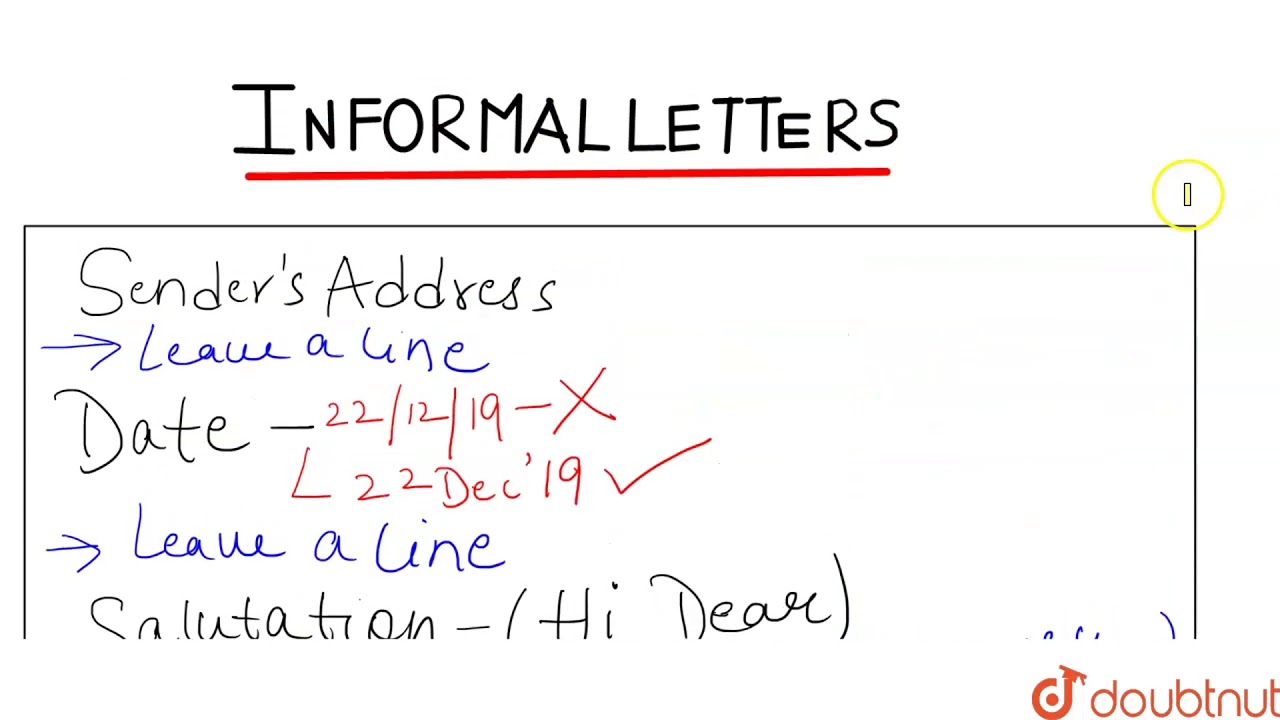 INFORMAL LETTERS
Sender's Address
→ Leave a line
Date - 22/12/19 - X
22 Dec' 19 ✓
→ Leave a line
Salutation - (Hi Dear)
doubtnut